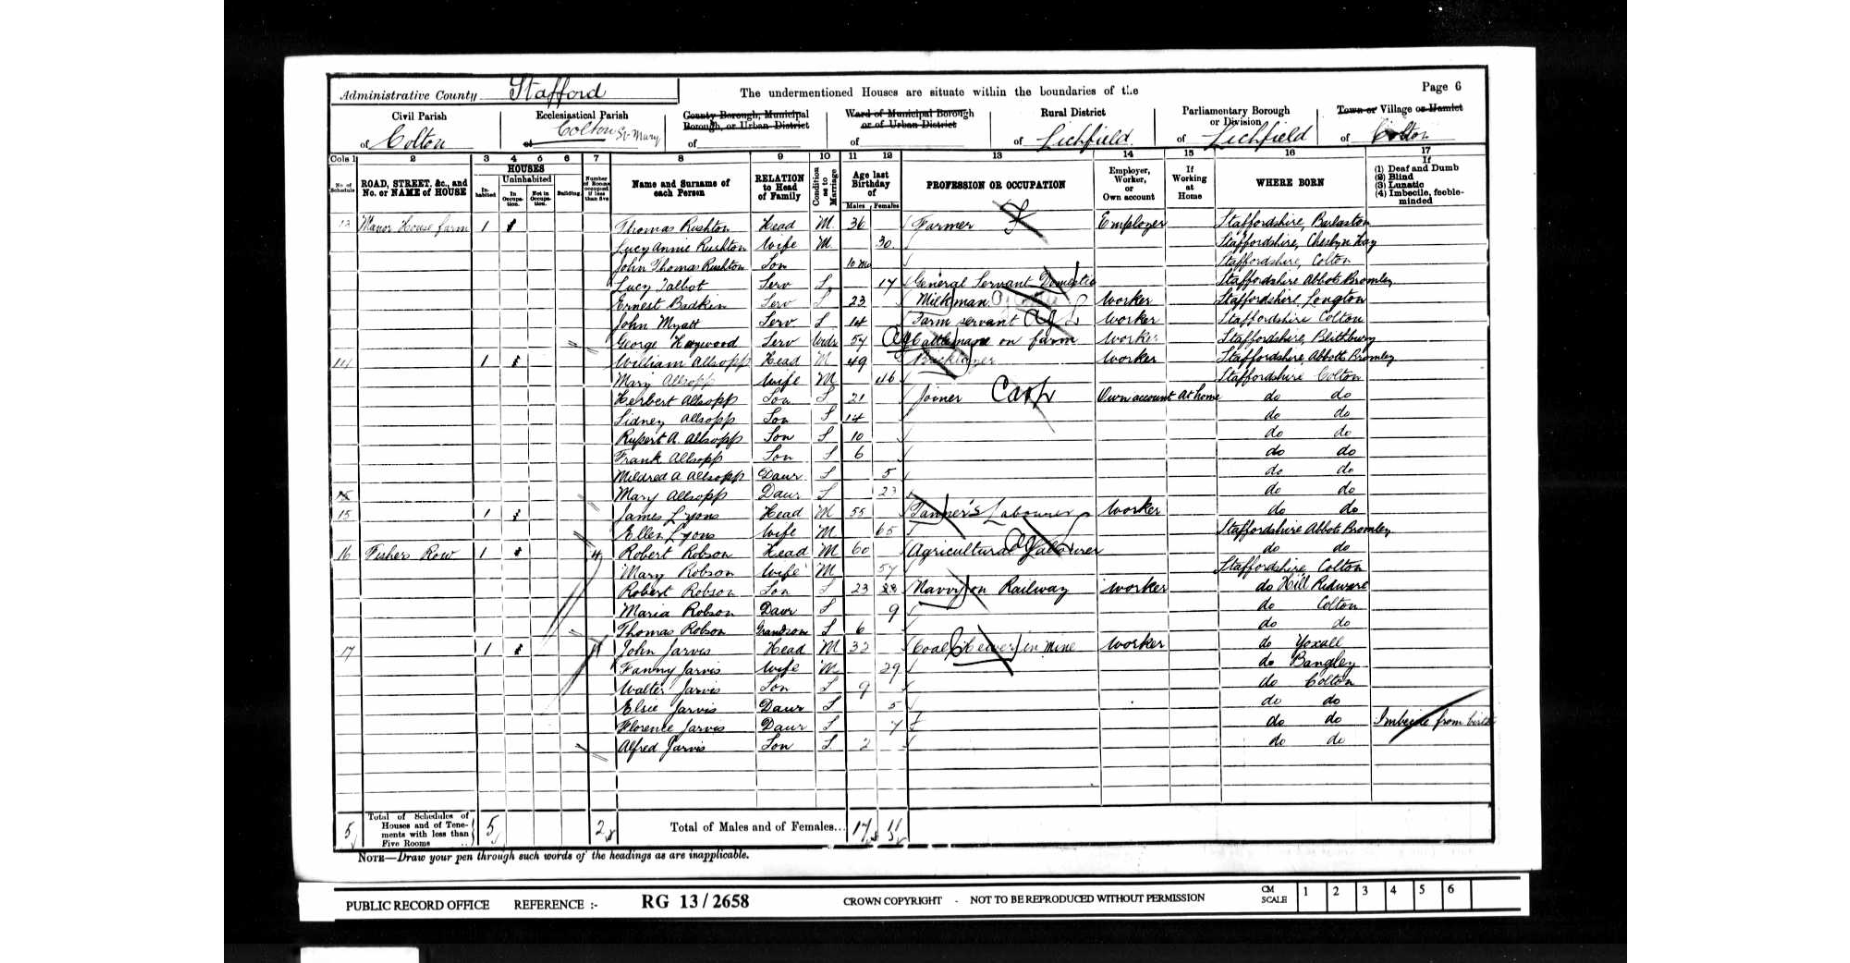 Administrative County Stafford The undermentioned Houses are situate within the boundaries of the Page 6
Civil Parish Ecclesiastical Parish County Borough, Municipal Borough, or Urban District Ward of Municipal Borough or of Urban District Rural District Parliamentary Borough or Division Town or Village or Hamlet
of Colton of Colton St. Mary of of of Lichfield of Lichfield of Colton
Cols 1 2 3 4 5 6 7 8 9 10 11 12 13 14 15 16 17
No. of Schedule ROAD, STREET, &c., and No. or NAME of HOUSE HOUSES Inhabited Uninhabited In Occupation. Not in Occupation. Building Number of Rooms occupied if less than five Name and Surname of each Person RELATION to Head of Family Condition as to Marriage Age last Birthday of Males Females PROFESSION OR OCCUPATION Employer, Worker, or Own account If Working at Home WHERE BORN If (1) Deaf and Dumb (2) Blind (3) Lunatic (4) Imbecile, feeble-minded
13 Manor House farm 1 Thomas Rushton Head M 36 Farmer Employer Staffordshire, Barlaston
Lucy Annie Rushton Wife M 30 Staffordshire, Cheslyn Hay
John Thomas Rushton Son 10 mo Staffordshire, Colton
Lucy Talbot Serv S 17 General Servant Domestic Staffordshire Abbots Bromley
Ernest Badkin Serv S 23 Milkman Worker Staffordshire, Longton
John Myatt Serv S 14 Farm servant Ag Worker Staffordshire Colton
George Haywood Serv Widr 57 Cattleman on farm Worker Staffordshire, Blithbury
14 1 William Allsopp Head M 49 Bricklayer Worker Staffordshire Abbots Bromley
Mary Allsopp Wife M 46 Staffordshire Colton
Herbert Allsopp Son S 21 Joiner Carp Own account At home do do
Sidney Allsopp Son S 14 do do
Rupert A. Allsopp Son S 10 do do
Frank Allsopp Son S 6 do do
Mildred A Allsopp Daur S 5 do do
Mary Allsopp Daur S 23 do do
15 1 James Lyons Head M 55 Tanner's Labourer Worker do do
Ellen Lyons Wife M 65 Staffordshire Abbots Bromley
16 Fishers Row 1 4 Robert Robson Head M 60 Agricultural Labourer Ag do do
Mary Robson Wife M 57 Staffordshire Colton
Robert Robson Son S 23 Navvy on Railway Worker do Hill Ridware
Maria Robson Daur S 9 do Colton
Thomas Robson Grandson S 6 do do
17 1 4 John Jarvis Head M 32 Coal Hewer in Mine Worker do Yoxall
Fanny Jarvis Wife M 29 do Bangley
Walter Jarvis Son S 9 do Colton
Elsie Jarvis Daur S 5 do do
Florence Jarvis Daur S 7 do do Imbecile from birth
Alfred Jarvis Son S 2 do do
5 Total of Schedules of Houses and of Tenements with less than Five Rooms 5 2 Total of Males and of Females... 17 11
NOTE—Draw your pen through such words of the headings as are inapplicable.
PUBLIC RECORD OFFICE REFERENCE :- RG 13 / 2658 CROWN COPYRIGHT - NOT TO BE REPRODUCED WITHOUT PERMISSION CM SCALE 1 2 3 4 5 6